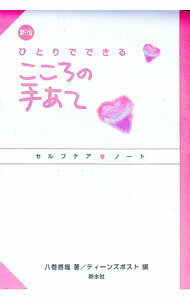 新版
ひとりでできる
こころの
手あて
セルフケア♥ノート
八巻香織 著／ティーンズポスト 編
新水社